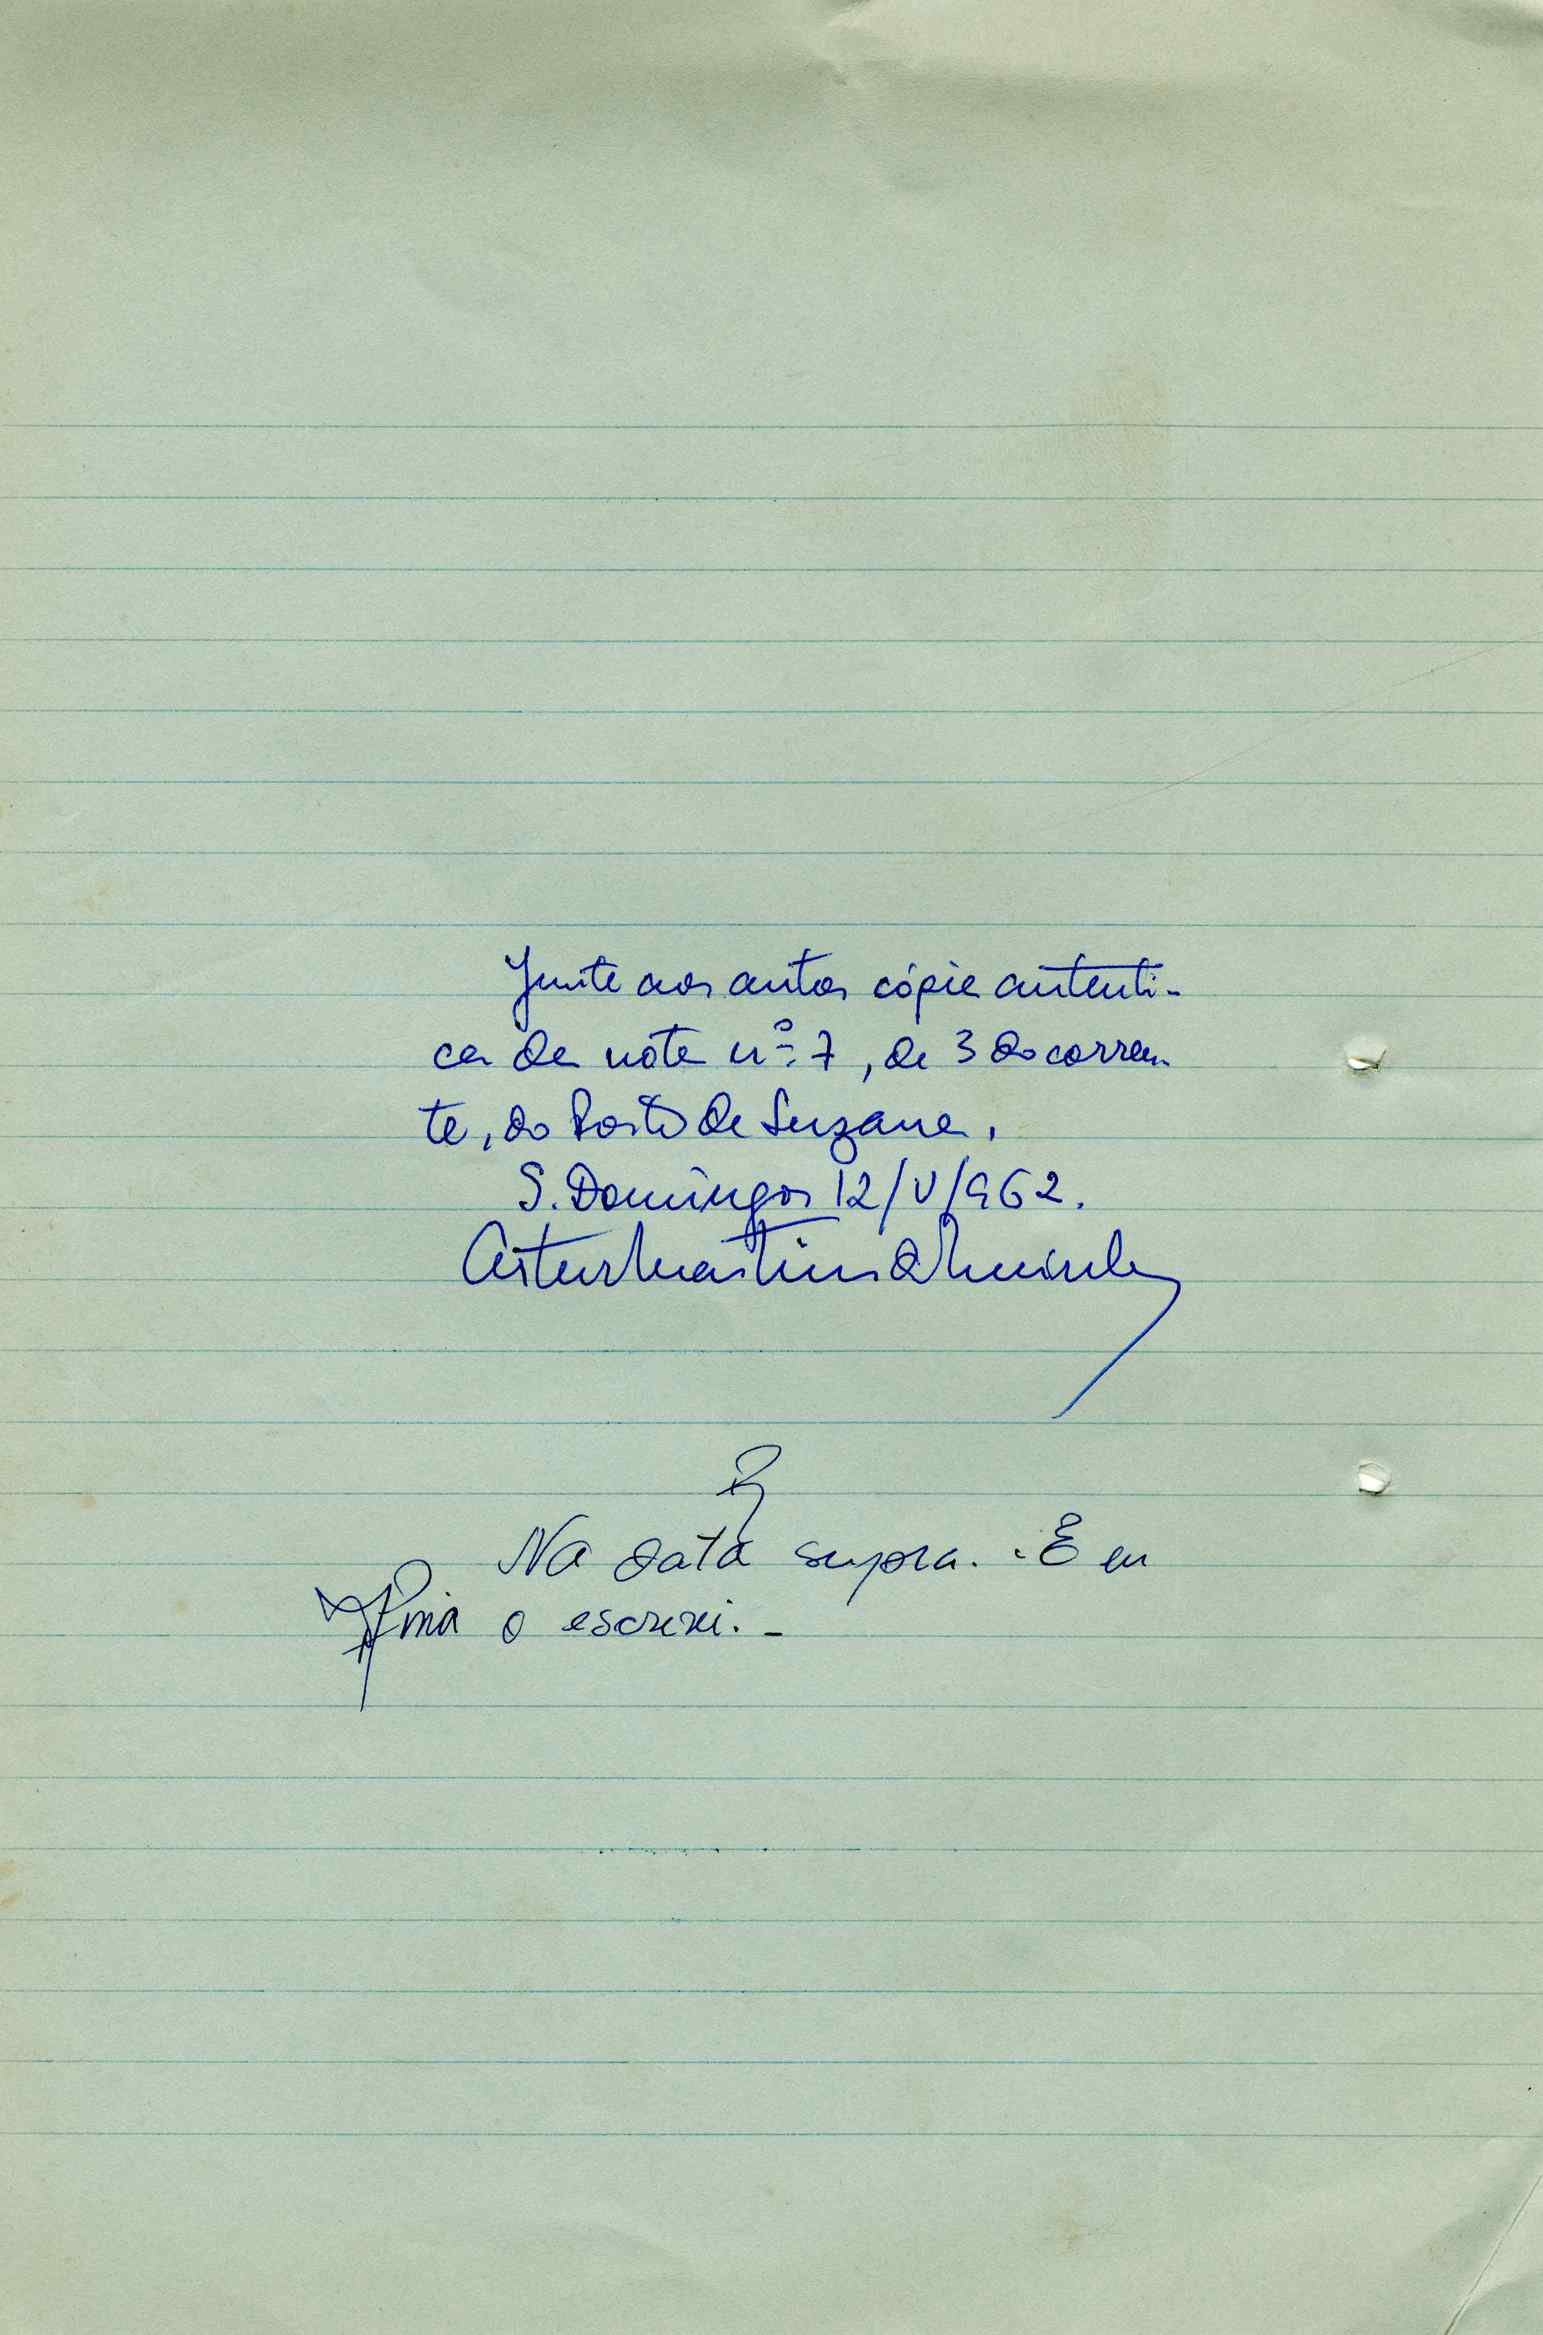 Junte aos autos cópia autenti-
ca da nota nº 7, de 3 do corren
te, do Posto de Suzana.
S. Domingos 12/V/962.
Artur Martins de Meireles
R
Na data supra. - E eu
o escrevi. -